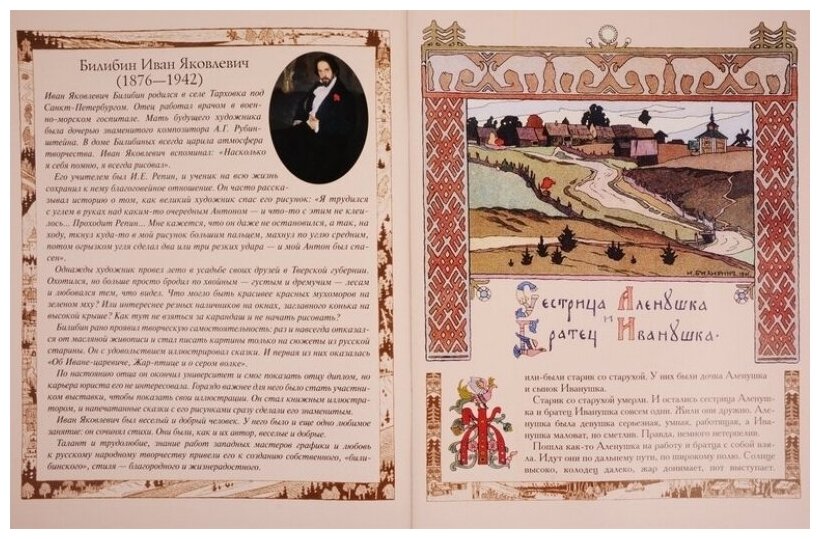 Билибин Иван Яковлевич
(1876—1942)
Иван Яковлевич Билибин родился в селе Тарховка под
Санкт-Петербургом. Отец работал врачом в воен-
но-морском госпитале. Мать будущего художника
была дочерью знаменитого композитора А.Г. Рубин-
штейна. В доме Билибиных всегда царила атмосфера
творчества. Иван Яковлевич вспоминал: «Насколько
я себя помню, я всегда рисовал».
Его учителем был И.Е. Репин, и ученик на всю жизнь
сохранил к нему благоговейное отношение. Он часто расска-
зывал историю о том, как великий художник спас его рисунок: «Я трудился
с углем в руках над каким-то очередным Антоном — и что-то с этим не клеи-
лось... Проходит Репин... Мне кажется, что он даже не остановился, а так, на
ходу, ткнул куда-то в мой рисунок большим пальцем, махнул по углю средним,
потом огрызком угля сделал два или три резких удара — и мой Антон был спа-
сен».
Однажды художник провел лето в усадьбе своих друзей в Тверской губернии.
Охотился, но больше просто бродил по хвойным — густым и дремучим — лесам
и любовался тем, что видел. Что могло быть красивее красных мухоморов на
зеленом мху? Или интереснее резных наличников на окнах, заглавного конька на
высокой крыше? Как тут не взяться за карандаш и не начать рисовать?
Билибин рано проявил творческую самостоятельность: раз и навсегда отказал-
ся от масляной живописи и стал писать картины только на сюжеты из русской
старины. Он с удовольствием иллюстрировал сказки. И первая из них оказалась
«Об Иване-царевиче, Жар-птице и о сером волке».
По настоянию отца он окончил университет и смог показать отцу диплом, но
карьера юриста его не интересовала. Гораздо важнее для него было стать участни-
ком выставки, чтобы показать свои иллюстрации. Он стал книжным иллюстра-
тором, и напечатанные сказки с его рисунками сразу сделали его знаменитым.
Иван Яковлевич был веселый и добрый человек. У него было и еще одно любимое
занятие: он сочинял стихи. Они были, как и их автор, веселые и добрые.
Талант и трудолюбие, знание работ западных мастеров графики и любовь
к русскому народному творчеству привели его к созданию собственного, «били-
бинского», стиля — благородного и жизнерадостного.
И. Билибинъ
Сестрица Аленушка
и
Братец Иванушка.
Жили-были старик со старухой. У них были дочка Аленушка
и сынок Иванушка.
Старик со старухой умерли. И остались сестрица Аленуш-
ка и братец Иванушка совсем одни. Жили они дружно. Але-
нушка была девушка серьезная, умная, работящая, а Ива-
нушка маловат, но сметлив. Правда, немного нетерпелив.
Пошла как-то Аленушка на работу и братца с собой взя-
ла. Идут они по дальнему пути, по широкому полю. Солнце
высоко, колодец далеко, жар донимает, пот выступает.